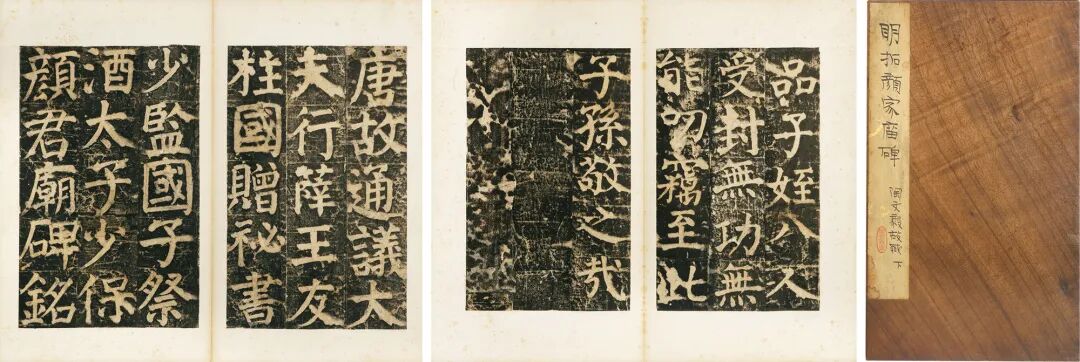 唐故通議大
夫行薛王友
柱國贈祕書
少監國子祭
酒太子少保
顏君廟碑銘
品子姪八人
受封無功無
能叨竊至此
子孫敬之哉
明拓顏家廟碑
陶文毅故藏 下